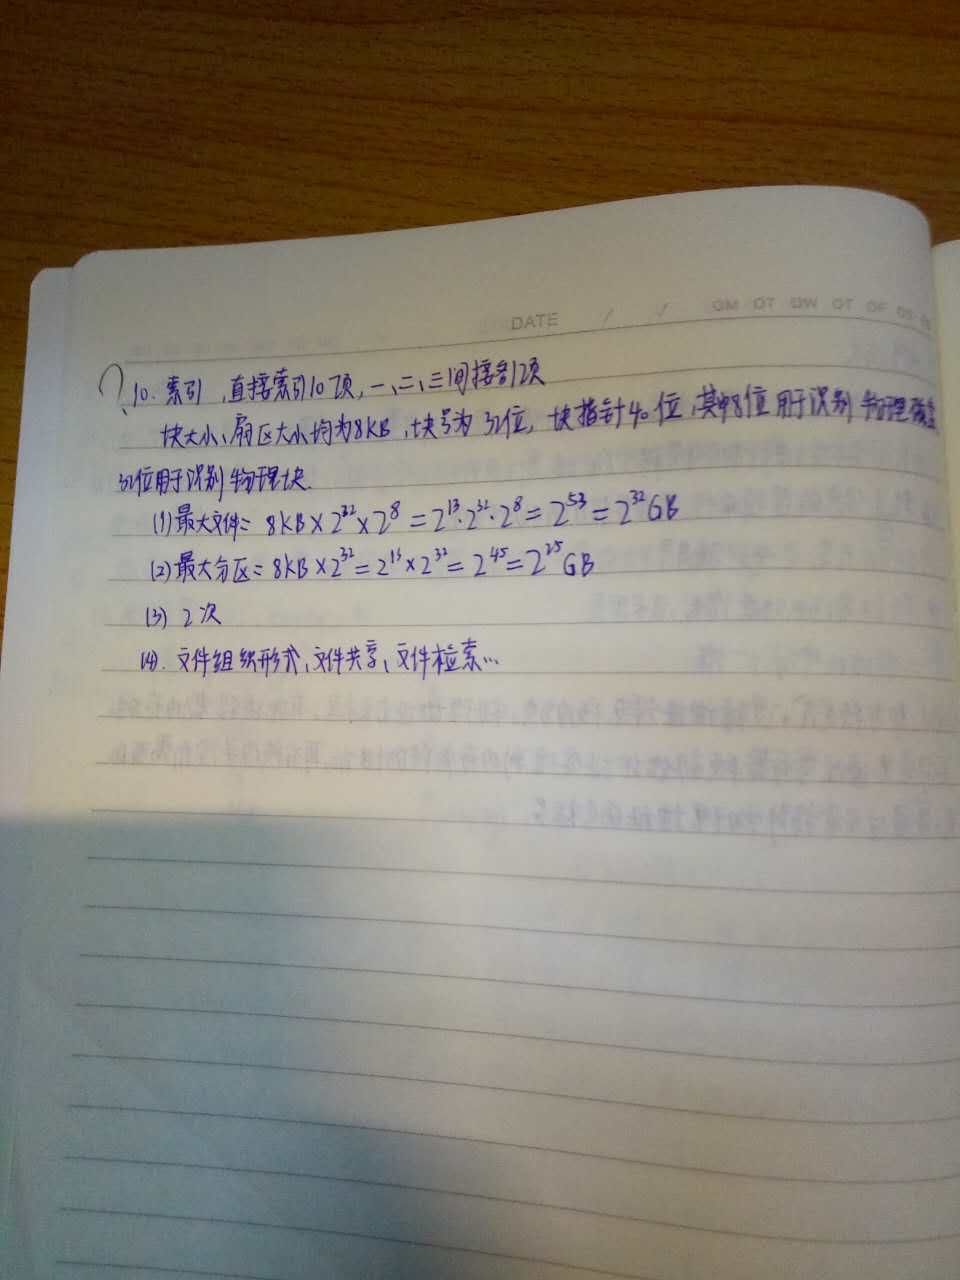 DATE / /
10. 索引, 直接索引10项, 一、二、三间接各12项
块大小、扇区大小均为8KB, 块号为32位, 块指针40位, 其中8位用于识别物理磁盘
32位用于识别物理块.
(1)最大文件= 8KB×2³²×2⁸=2¹³·2³²·2⁸=2⁵³=2³²GB
(2)最大分区=8KB×2³²=2¹³×2³²=2⁴⁵=2²⁵GB
(3) 2次
(4). 文件组织形式、文件共享、文件检索...